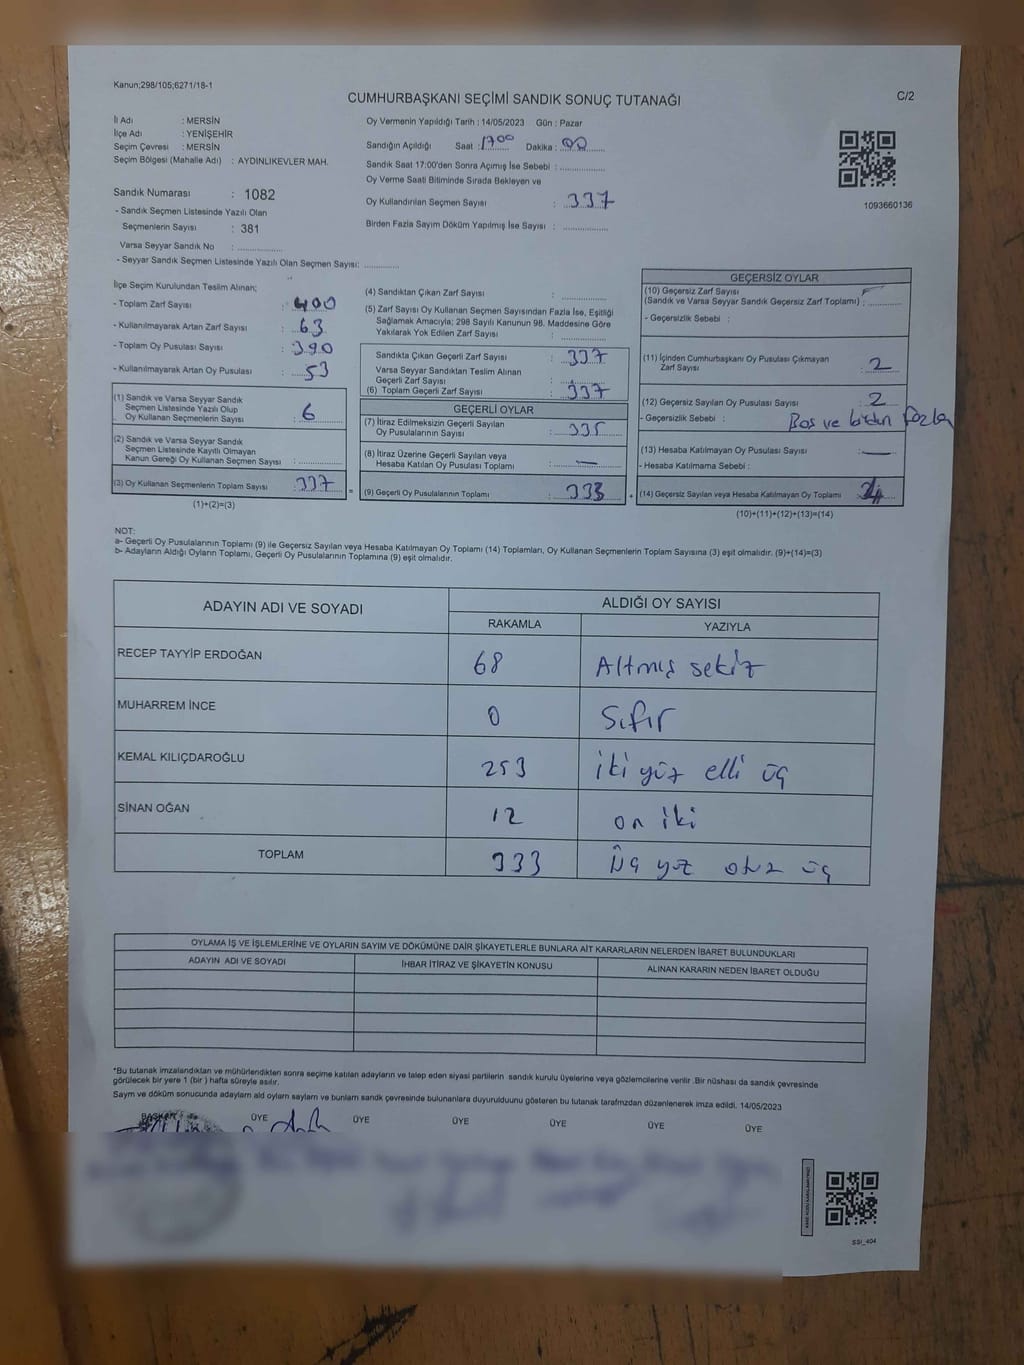 Kanun;298/105;6271/18-1
CUMHURBAŞKANI SEÇİMİ SANDIK SONUÇ TUTANAĞI
C/2
İl Adı : MERSİN
İlçe Adı : YENİŞEHİR
Seçim Çevresi : MERSİN
Seçim Bölgesi (Mahalle Adı) : AYDINLIKEVLER MAH.
Sandık Numarası : 1082
- Sandık Seçmen Listesinde Yazılı Olan
Seçmenlerin Sayısı : 381
Varsa Seyyar Sandık No : ..............
- Seyyar Sandık Seçmen Listesinde Yazılı Olan Seçmen Sayısı: ............
Oy Vermenin Yapıldığı Tarih : 14/05/2023 Gün : Pazar
Sandığın Açıldığı Saat : 1700 Dakika : 00
Sandık Saat 17:00'den Sonra Açımış İse Sebebi : ..............
Oy Verme Saati Bitiminde Sırada Bekleyen ve
Oy Kullandırılan Seçmen Sayısı : 337
Birden Fazla Sayım Döküm Yapılmış İse Sayısı : ..............
1093660136
İlçe Seçim Kurulundan Teslim Alınan;
- Toplam Zarf Sayısı : 400
- Kullanılmayarak Artan Zarf Sayısı : 63
- Toplam Oy Pusulası Sayısı : 390
- Kullanılmayarak Artan Oy Pusulası : 53
(1) Sandık ve Varsa Seyyar Sandık
Seçmen Listesinde Yazılı Olup
Oy Kullanan Seçmenlerin Sayısı : 6
(2) Sandık ve Varsa Seyyar Sandık
Seçmen Listesinde Kayıtlı Olmayan
Kanun Gereği Oy Kullanan Seçmen Sayısı : ..............
(3) Oy Kullanan Seçmenlerin Toplam Sayısı : 337
(1)+(2)=(3)
(4) Sandıktan Çıkan Zarf Sayısı : ..............
(5) Zarf Sayısı Oy Kullanan Seçmen Sayısından Fazla İse, Eşitliği
Sağlamak Amacıyla; 298 Sayılı Kanunun 98. Maddesine Göre
Yakılarak Yok Edilen Zarf Sayısı : ..............
Sandıkta Çıkan Geçerli Zarf Sayısı : 337
Varsa Seyyar Sandıktan Teslim Alınan
Geçerli Zarf Sayısı : ..............
(6) Toplam Geçerli Zarf Sayısı : 337
GEÇERLİ OYLAR
(7) İtiraz Edilmeksizin Geçerli Sayılan
Oy Pusulalarının Sayısı : 335
(8) İtiraz Üzerine Geçerli Sayılan veya
Hesaba Katılan Oy Pusulası Toplamı : —
= (9) Geçerli Oy Pusulalarının Toplamı : 333 +
GEÇERSİZ OYLAR
(10) Geçersiz Zarf Sayısı
(Sandık ve Varsa Seyyar Sandık Geçersiz Zarf Toplamı) : ..........
- Geçersizlik Sebebi :
(11) İçinden Cumhurbaşkanı Oy Pusulası Çıkmayan
Zarf Sayısı : 2
(12) Geçersiz Sayılan Oy Pusulası Sayısı : 2
- Geçersizlik Sebebi : Boş ve birden fazla
(13) Hesaba Katılmayan Oy Pusulası Sayısı : —
- Hesaba Katılmama Sebebi :
(14) Geçersiz Sayılan veya Hesaba Katılmayan Oy Toplamı : 4
(10)+(11)+(12)+(13)=(14)
NOT:
a- Geçerli Oy Pusulalarının Toplamı (9) ile Geçersiz Sayılan veya Hesaba Katılmayan Oy Toplamı (14) Toplamları, Oy Kullanan Seçmenlerin Toplam Sayısına (3) eşit olmalıdır. (9)+(14)=(3)
b- Adayların Aldığı Oyların Toplamı, Geçerli Oy Pusulalarının Toplamına (9) eşit olmalıdır.
ADAYIN ADI VE SOYADI ALDIĞI OY SAYISI
RAKAMLA YAZIYLA
RECEP TAYYİP ERDOĞAN 68 Altmış sekiz
MUHARREM İNCE 0 Sıfır
KEMAL KILIÇDAROĞLU 253 iki yüz elli üç
SİNAN OĞAN 12 on iki
TOPLAM 333 Üç yüz otuz üç
OYLAMA İŞ VE İŞLEMLERİNE VE OYLARIN SAYIM VE DÖKÜMÜNE DAİR ŞİKAYETLERLE BUNLARA AİT KARARLARIN NELERDEN İBARET BULUNDUKLARI
ADAYIN ADI VE SOYADI İHBAR İTİRAZ VE ŞİKAYETİN KONUSU ALINAN KARARIN NEDEN İBARET OLDUĞU
*Bu tutanak imzalandıktan ve mühürlendikten sonra seçime katılan adayların ve talep eden siyasi partilerin sandık kurulu üyelerine veya gözlemcilerine verilir .Bir nüshası da sandık çevresinde
görülecek bir yere 1 (bir ) hafta süreyle asılır.
Sayım ve döküm sonucunda adayların ald oyların sayları ve bunların sandk çevresinde bulunanlara duyurulduunu gösteren bu tutanak tarafmzdan düzenlenerek imza edildi. 14/05/2023
BAŞKAN ÜYE ÜYE ÜYE ÜYE ÜYE ÜYE
SSI_404